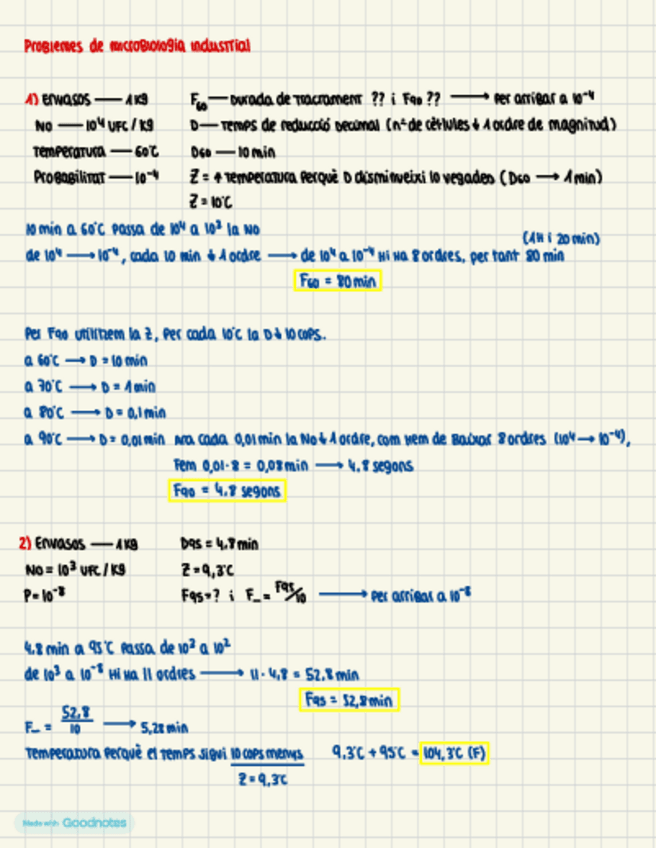 Problemes de microbiologia industrial
1) Envasos — 1 Kg F60 — Durada de tractament ?? i F90 ?? → Per arribar a 10⁻⁴
No — 10⁴ UFC / Kg D — Temps de reducció decimal (nº de cèl·lules ↓ 1 ordre de magnitud)
Temperatura — 60°C D60 — 10 min
Probabilitat — 10⁻⁴ Z = ↑ temperatura perquè D disminueixi 10 vegades (D60 → 1 min)
Z = 10°C
10 min a 60°C passa de 10⁴ a 10³ la No
(1H i 20 min)
de 10⁴ → 10⁻⁴, cada 10 min ↓ 1 ordre → de 10⁴ a 10⁻⁴ hi ha 8 ordres, per tant 80 min
F60 = 80 min
Per F90 utilitzem la Z, per cada 10°C la D ↓ 10 cops.
a 60°C → D = 10 min
a 70°C → D = 1 min
a 80°C → D = 0,1 min
a 90°C → D = 0,01 min Ara cada 0,01 min la No ↓ 1 ordre, com hem de baixar 8 ordres (10⁴ → 10⁻⁴),
Fem 0,01 · 8 = 0,08 min → 4,8 segons
F90 = 4,8 segons
2) Envasos — 1 Kg D95 = 4,8 min
No = 10³ UFC / Kg Z = 9,3°C
P = 10⁻⁸ F95 = ? i F_ = F95/10 → Per arribar a 10⁻⁸
4,8 min a 95°C passa de 10³ a 10²
de 10³ a 10⁻⁸ hi ha 11 ordres → 11 · 4,8 = 52,8 min
F95 = 52,8 min
F_ = 52,8/10 → 5,28 min
Temperatura perquè el temps sigui 10 cops menys 9,3°C + 95°C = 104,3°C (F)
Z = 9,3°C
Made with Goodnotes